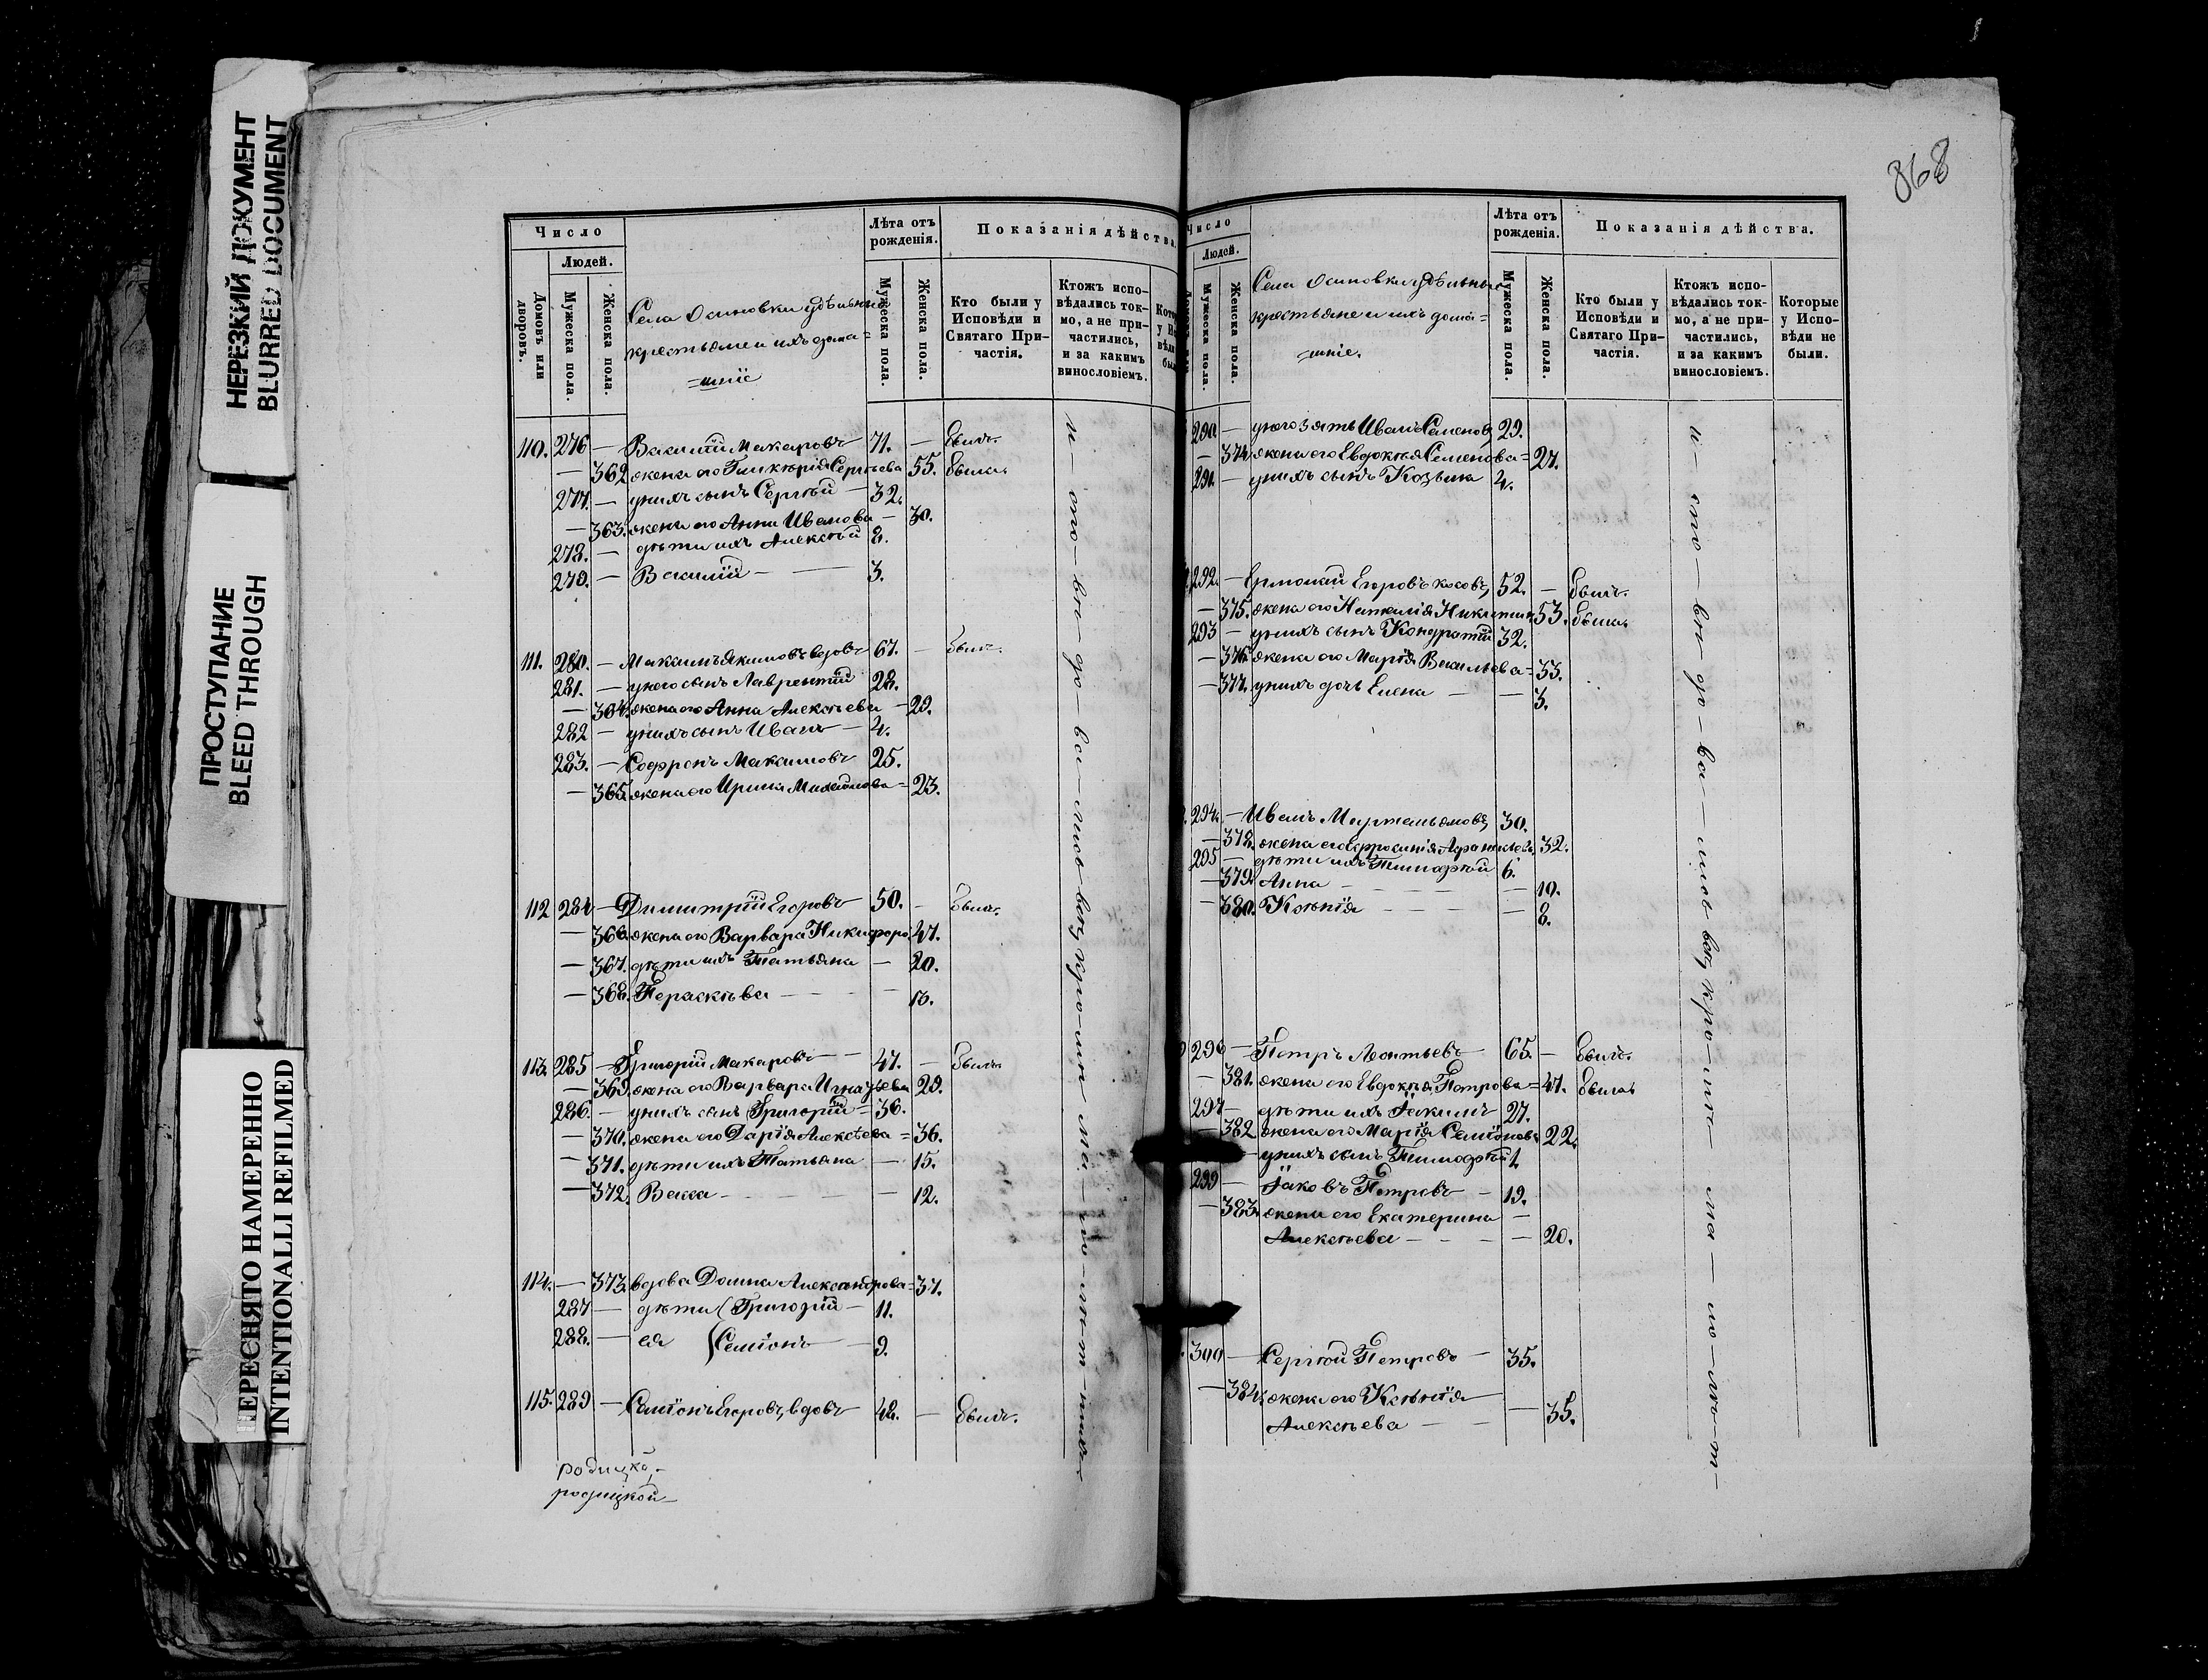 НЕРЕЗКИЙ ДОКУМЕНТ
BLURRED DOCUMENT
ПРОСТУПАНИЕ
BLEED THROUGH
ПЕРЕСНЯТО НАМЕРЕННО
INTENTIONALLI REFILMED
Число
Людей.
Домовъ или дворовъ.
Мужеска пола.
Женска пола.
Села Осиновки удѣльные
крестьяне и ихъ дома=
=шніе
Лѣта отъ рожденія.
Мужеска пола.
Женска пола.
Показанія дѣйства.
Кто были у Исповѣди и Святаго Причастія.
Ктожъ исповѣдались токмо, а не причастились, и за какимъ винословіемъ.
110. 276 — Василій Макаровъ 71. — былъ.
— 362 жена его Гликерія Сергѣева 55. была.
277. — у нихъ сынъ Сергѣй — 32.
— 363. жена его Анна Иванова — 30.
278. — дѣти ихъ Алексѣй 8.
279. — Василій — — 3.
111. 280. — Максимъ Якимовъ вдовъ 67. — былъ.
281. — у него сынъ Лаврентій 28.
— 364. жена его Анна Алексѣева — 29.
282 — у нихъ сынъ Иванъ — 4.
283. — Софронъ Максимовъ 25.
— 365. жена его Ирина Михайлова = 23.
112 284 — Димитрій Егоровъ 50. — былъ.
— 366. жена его Варвара Никифоро 47.
— 367. дѣти ихъ Татьяна — 20.
— 368. Параскѣва — — — 13.
113. 285 — Григорій Макаровъ — 47. — былъ.
— 369. жена его Варвара Игнатьева 29.
286. — у нихъ сынъ Григорій = 36.
— 370. жена его Дарія Алексѣева = 36.
— 371. дѣти ихъ Татьяна — 15.
— 372. Васса — — — — 12.
114. — 373. вдова Домна Александрова = 37.
287 — дѣти Григорій — 11.
288. — ея Семіонъ — 9.
115. 289 — Семіонъ Егоровъ, вдовъ 48. — былъ.
868
Число
Людей.
Мужеска пола.
Женска пола.
Села Осиновки удѣльные
крестьяне и ихъ дома=
=шніе.
Лѣта отъ рожденія.
Мужеска пола.
Женска пола.
Показанія дѣйства.
Кто были у Исповѣди и Святаго Причастія.
Ктожъ исповѣдались токмо, а не причастились, и за какимъ винословіемъ.
Которые у Исповѣди не были.
290. — у него зять Иванъ Семеновъ 29.
— 374. жена его Евдокѣя Семенова = 27.
291. — у нихъ сынъ Козьма 4.
292. — Ермолай Егоровъ 52. — былъ.
— 375. жена его Наталія Никитина 53. была.
293 — у нихъ сынъ Кондратій 32.
— 376. жена его Марія Васильева = 33.
— 377. у нихъ дочь Елена — — 3.
294. — Иванъ Мартемьяновъ 30.
— 378. жена его 32.
295 — дѣти ихъ Тимофѣй 6.
— 379. Анна — — — — 10.
— 380. Ксѣнія — — — — 8.
296 — Петръ Леонтьевъ — 65. — былъ.
— 381. жена его Евдокѣя Петрова = 47. была
297 — дѣти ихъ Іакимъ 27.
— 382 жена его Марія Семіонова 22.
— у нихъ сынъ Тимофѣй 1.
299 — Іаковъ Петровъ — 19.
— 383. жена его Екатерина —
Алексѣева — — — — 20.
300 — Сергѣй Петровъ — 35.
— 384. жена его Ксѣнія
Алексѣева — — — 35.